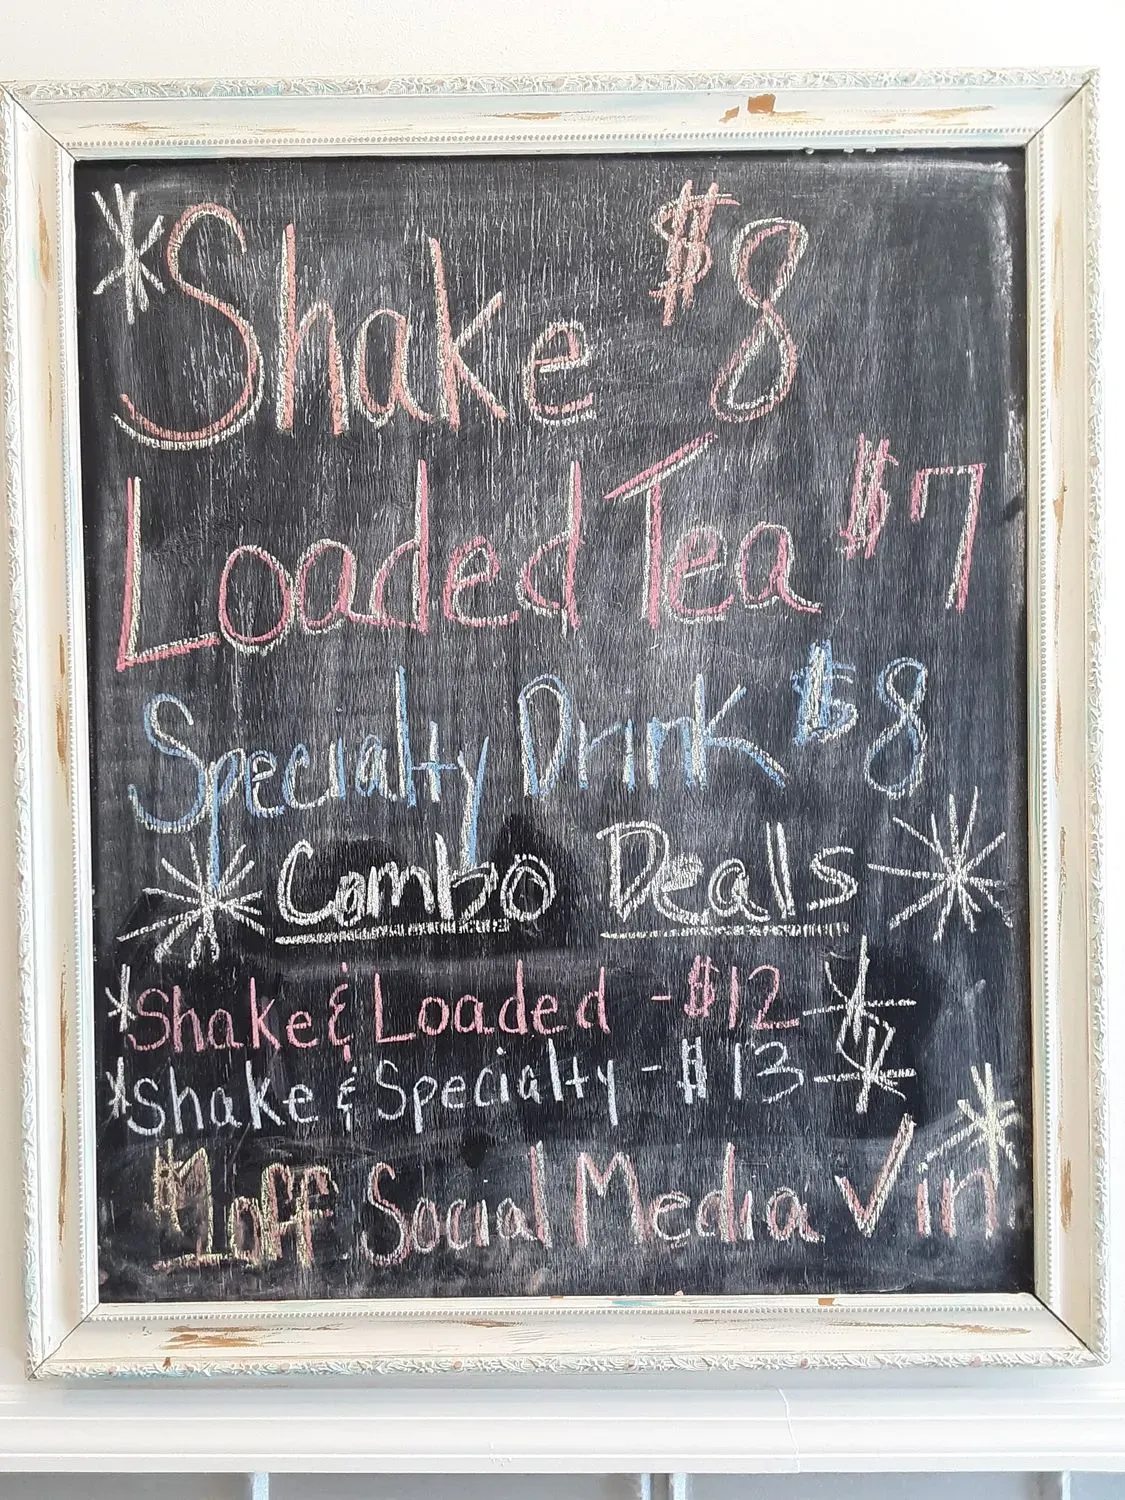 *Shake $8
Loaded Tea $7
Specialty Drink $8
* Combo Deals *
*Shake & Loaded - $12 *
*Shake & Specialty - $13 *
$1 off Social Media √ in *